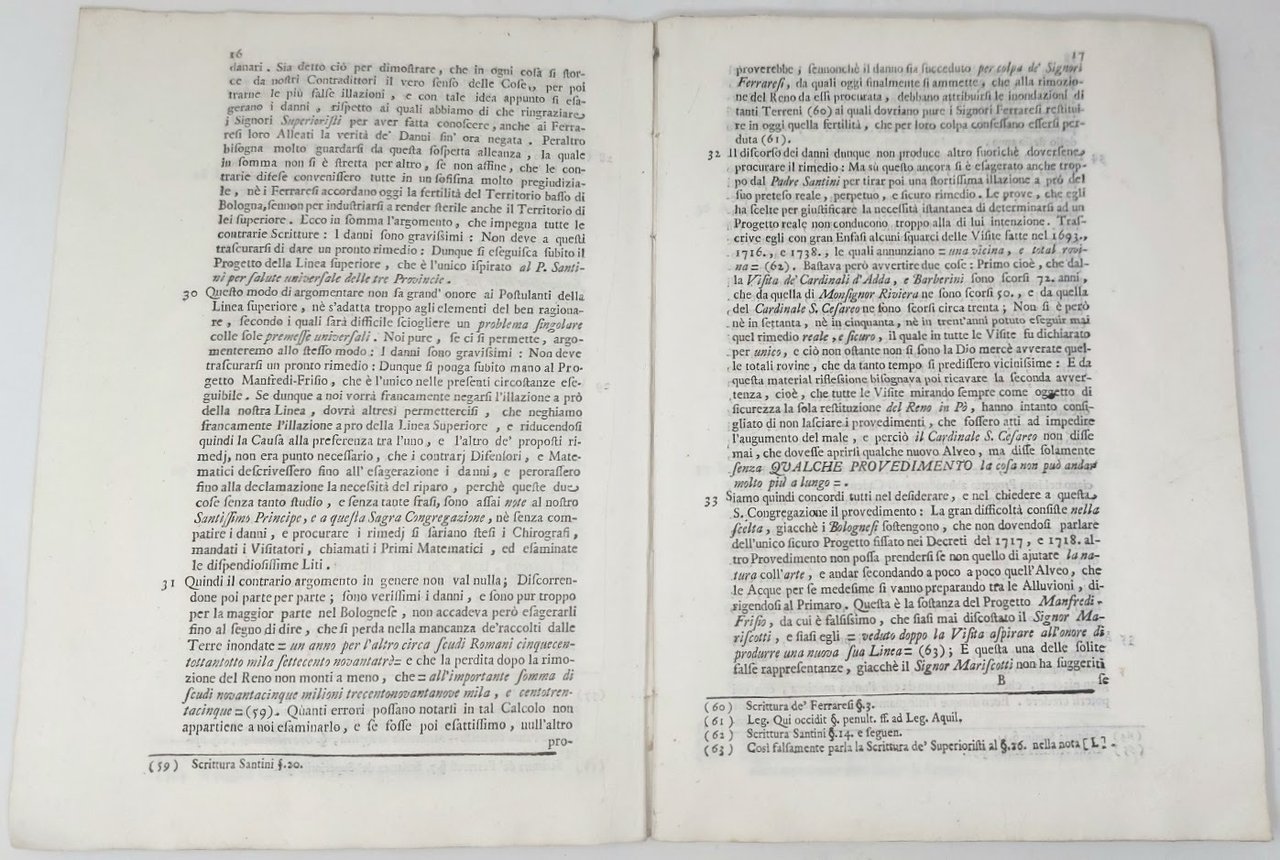 16
danari. Sia detto ciò per dimoſtrare, che in ogni coſa ſi ſtor-
ce da noſtri Contradittori il vero ſenſo delle Coſe, per poi
trarne le più falſe illazioni, e con tale idea appunto ſi eſa-
gerano i danni, riſpetto ai quali abbiamo di che ringraziare
i Signori Superioriſti per aver fatta conoſcere, anche ai Ferra-
reſi loro Alleati la verità de' Danni ſin' ora negata. Peraltro
biſogna molto guardarſi da queſta ſoſpetta alleanza, la quale
in ſomma non ſi è ſtretta per altro, ſe non affine, che le con-
trarie difeſe conveniſſero tutte in un ſofiſma molto pregiudizia-
le, nè i Ferrareſi accordano oggi la fertilità del Territorio baſſo di
Bologna, ſennon per induſtriarſi a render ſterile anche il Territorio di
lei ſuperiore. Ecco in ſomma l'argomento, che impegna tutte le
contrarie Scritture: I danni ſono graviſſimi: Non deve a queſti
traſcurarſi di dare un pronto rimedio: Dunque ſi eſeguiſca ſubito il
Progetto della Linea ſuperiore, che è l'unico iſpirato al P. Santi-
ni per ſalute univerſale delle tre Provincie.
30 Queſto modo di argomentare non fa grand' onore ai Poſtulanti della
Linea ſuperiore, nè s'adatta troppo agli elementi del ben ragiona-
re, ſecondo i quali ſarà difficile ſciogliere un problema ſingolare
colle ſole premeſſe univerſali. Noi pure, ſe ci ſi permette, argo-
menteremo allo ſteſſo modo: I danni ſono graviſſimi: Non deve
traſcurarſi un pronto rimedio: Dunque ſi ponga ſubito mano al Pro-
getto Manfredi-Friſio, che è l'unico nelle preſenti circoſtanze eſe-
guibile. Se dunque a noi vorrà francamente negarſi l'illazione a prò
della noſtra Linea, dovrà altresì permetterciſi, che neghiamo
francamente l'illazione a pro della Linea Superiore, e riducendoſi
quindi la Cauſa alla preferenza tra l'uno, e l'altro de' propoſti ri-
medj, non era punto neceſſario, che i contrarj Difenſori, e Mate-
matici deſcriveſſero fino all' eſagerazione i danni, e peroraſſero
fino alla declamazione la neceſſità del riparo, perchè queſte due
coſe ſenza tanto ſtudio, e ſenza tante fraſi, ſono aſſai note al noſtro
Santiſſimo Principe, e a queſta Sagra Congregazione, nè ſenza com-
patire i danni, e procurare i rimedj ſi ſariano ſteſi i Chirografi,
mandati i Viſitatori, chiamati i Primi Matematici, ed eſaminate
le diſpendioſiſſime Liti.
31 Quindi il contrario argomento in genere non val nulla; Diſcorren-
done poi parte per parte; ſono veriſſimi i danni, e ſono pur troppo
per la maggior parte nel Bologneſe, non accadeva però eſagerarli
fino al ſegno di dire, che ſi perda nella mancanza de' raccolti dalle
Terre inondate = un anno per l'altro circa ſcudi Romani cinquecen-
tottantotto mila ſettecento novantatrè = e che la perdita dopo la rimo-
zione del Reno non monti a meno, che = all'importante ſomma di
ſcudi novantacinque milioni trecentonovantanove mila, e centotren-
tacinque = (59). Quanti errori poſſano notarſi in tal Calcolo non
appartiene a noi eſaminarlo, e ſe foſſe poi eſattiſſimo, null'altro
pro-
(59) Scrittura Santini §. 20.
17
proverebbe, ſennonchè il danno ſia ſucceduto per colpa de' Signori
Ferrareſi, da quali oggi finalmente ſi ammette, che alla rimozio-
ne del Reno da eſſi procurata, debbano attribuirſi le inondazioni di
tanti Terreni (60) ai quali dovriano pure i Signori Ferrareſi reſtitui-
re in oggi quella fertilità, che per loro colpa confeſſano eſſerſi per-
duta (61).
32 Il diſcorſo dei danni dunque non produce altro fuorichè doverſene
procurare il rimedio: Ma sù queſto ancora ſi è eſagerato anche trop-
po dal Padre Santini per tirar poi una ſtortiſſima illazione a prò del
ſuo preteſo reale, perpetuo, e ſicuro rimedio. Le prove, che egli
ha ſcelte per giuſtificare la neceſſità iſtantanea di determinarſi ad un
Progetto reale non conducono troppo alla di lui intenzione. Traſ-
crive egli con gran Enfaſi alcuni ſquarci delle Viſite fatte nel 1693.,
1716., e 1738., le quali annunziano = una vicina, e total rovi-
na = (62). Baſtava però avvertire due coſe: Primo cioè, che dal-
la Viſita de' Cardinali d'Adda, e Barberini ſono ſcorſi 72. anni,
che da quella di Monſignor Riviera ne ſono ſcorſi 50., e da quella
del Cardinale S. Ceſareo ne ſono ſcorſi circa trenta; Non ſi è però
nè in ſettanta, nè in cinquanta, nè in trent'anni potuto eſeguir mai
quel rimedio reale, e ſicuro, il quale in tutte le Viſite fu dichiarato
per unico, e ciò non oſtante non ſi ſono la Dio mercè avverate quel-
le totali rovine, che da tanto tempo ſi prediſſero viciniſſime: E da
queſta material rifleſſione biſognava poi ricavare la ſeconda avver-
tenza, cioè, che tutte le Viſite mirando ſempre come oggetto di
ſicurezza la ſola reſtituzione del Reno in Pò, hanno intanto conſi-
gliato di non laſciare i provedimenti, che foſſero atti ad impedire
l'augumento del male, e perciò il Cardinale S. Ceſareo non diſſe
mai, che doveſſe aprirſi qualche nuovo Alveo, ma diſſe ſolamente
ſenza QUALCHE PROVEDIMENTO la coſa non può andar
molto più a lungo =.
33 Siamo quindi concordi tutti nel deſiderare, e nel chiedere a queſta
S. Congregazione il provedimento: La gran difficoltà conſiſte nella
ſcelta, giacchè i Bologneſi ſoſtengono, che non dovendoſi parlare
dell'unico ſicuro Progetto fiſſato nei Decreti del 1717, e 1718. al-
tro Provedimento non poſſa prenderſi ſe non quello di ajutare la na-
tura coll'arte, e andar ſecondando a poco a poco quell'Alveo, che
le Acque per ſe medeſime ſi vanno preparando tra le Alluvioni, di-
rigendoſi al Primaro. Queſta è la ſoſtanza del Progetto Manfredi-
Friſio, da cui è falſiſſimo, che ſiaſi mai diſcoſtato il Signor Ma-
riſcotti, e ſiaſi egli = veduto doppo la Viſita aſpirare all'onore di
produrre una nuova ſua Linea = (63); E queſta una delle ſolite
falſe rappreſentanze, giacchè il Signor Mariſcotti non ha ſuggeriti
B ſe
(60) Scrittura de' Ferrareſi §. 3.
(61) Leg. Qui occidit §. penult. ff. ad Leg. Aquil.
(62) Scrittura Santini §. 14. e ſeguen.
(63) Così falſamente parla la Scrittura de' Superioriſti al §. 26. nella nota [L].